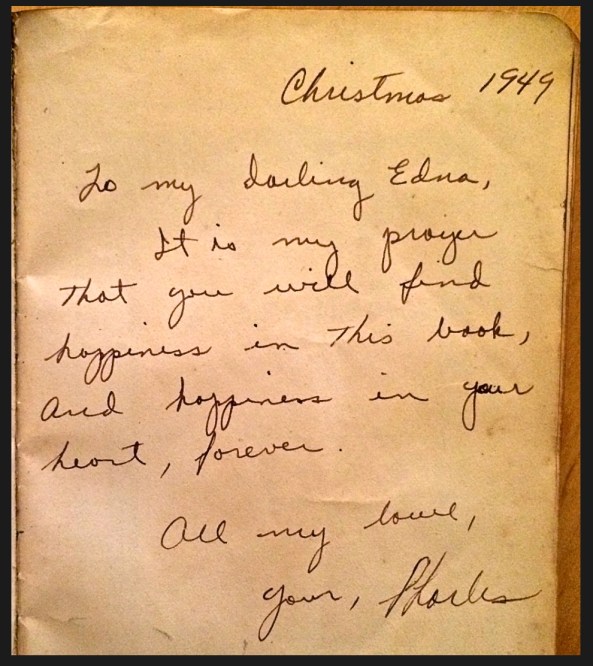 Christmas 1949
To my darling Edna,
It is my prayer
that you will find
happiness in this book,
and happiness in your
heart, forever.
All my love,
your, Charles